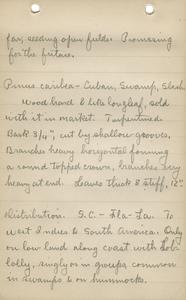 far, seeding open fields. Promising
for the future.
Pinus caribea - Cuban, Swamp, Slash.
Wood hard & like longleaf, sold
with it in market. Turpentined.
Bark 3/4", cut by shallow grooves.
Branches heavy horizontal forming
a round topped crown, branches very
heavy at end. Leaves thick & stiff, 12"
Distribution. S.C. - Fla - La. To
West Indies & South America. Only
on low land along coast with Lob-
lolly, singly or in groups, common
in swamps & on hummocks.